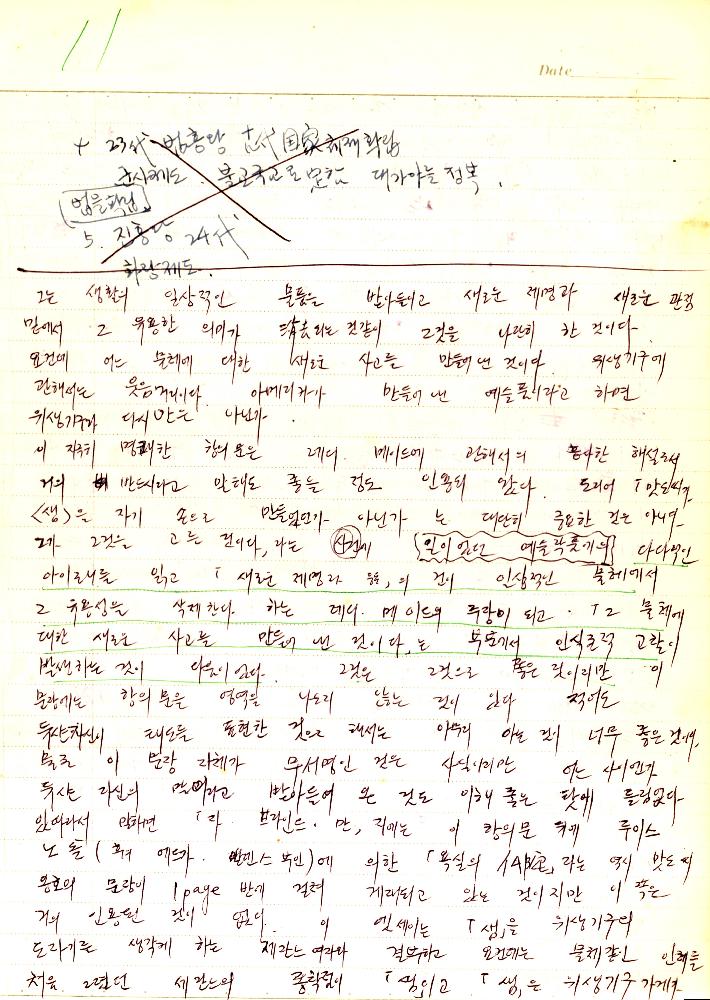 11
Date
4 23代 법흥왕 古代国家체제확립
군사제도. 불교국교로 대가야를 정복.
5. 진흥왕 24代
화랑제도.
그는 생활의 일상적인 물품을 받아들이고 새로운 제명과 새로운 관점
밑에서 그 유용한 의미가 것같이 그것을 나란히 한 것이다.
요컨데 어느 물체에 대한 새로운 사고를 만들어 낸 것이다. 위생기구에
관해서는 웃음거리이다. 아메리카가 만들어 낸 예술품이라고 하면
위생기구와 다시 아닌가.
이 지극히 명쾌한 항의문은 레디. 메이드에 관해서의 해설로서
거의 반드시라고 말해도 좋을 정도 인용되어 왔다. 도리어 「맛드씨가
<샘>을 자기 손으로 만들었던가 아닌가는 대단히 중요한 것은 아니다.
그가 그것을 고른 것이다」라는 사건에 일이었던 예술작품기의 다다적인
아이로니를 읽고 「새로운 제명과 의 것이 인상적인 물체에서
그 유용성을 삭제한다. 하는 레디. 메이드의 주장이 되고. 「그 물체에
대한 새로운 사고를 만들어 낸 것이다」는 부분에서 인식론적 고찰이
발생하는 것이 다음이었다. 그것은 그것으로 좋은 것이리만 이
문장에는 항의문을 영역을 나오리 않는 것이 있다 적어도
뒤샹자신이 태도를 표현한 것으로 해서는 아무리 아는 것이 너무 좋은 것이며,
물론 이 문장 자체가 무서명인 것은 사실이리만 어느 사이엔가
뒤샹 자신의 말이라고 받아들여 온 것도 이해 좋은 탓에 틀림없다.
잇따라서 말하면 「더 브라인드. 맨, 지에는 이 항의문 뒤에 루이스
노톤(혹은 에드가. 부인)에 의한 「욕실의 」라는 역시 맛드씨
옹호의 문장이 1page 반에 걸쳐 게재되고 있는 것이지만 이 쪽은
거의 인용된 것이 없다. 이 엣세이는 「샘」을 위생기구의
도라기를 생각케 하는 세잔느 여자와 결부하고 요컨데는 물체같은 인체를
처음 그렸던 세잔느의 종착점이 「샘」이고 「샘」은 위생기구 가게가